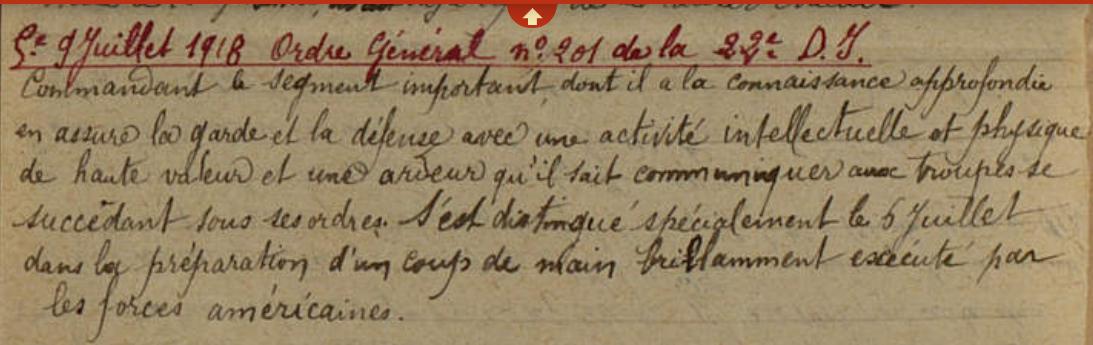 Le 9 Juillet 1918 Ordre Général nº 201 de la 22e D.I.
Commandant le segment important, dont il a la connaissance approfondie
en assure la garde et la défense avec une activité intellectuelle et physique
de haute valeur et une ardeur qu'il sait communiquer aux troupes se
succédant sous ses ordres. S'est distingué spécialement le 5 Juillet
dans la préparation d'un coup de main brillamment exécuté par
les forces américaines.